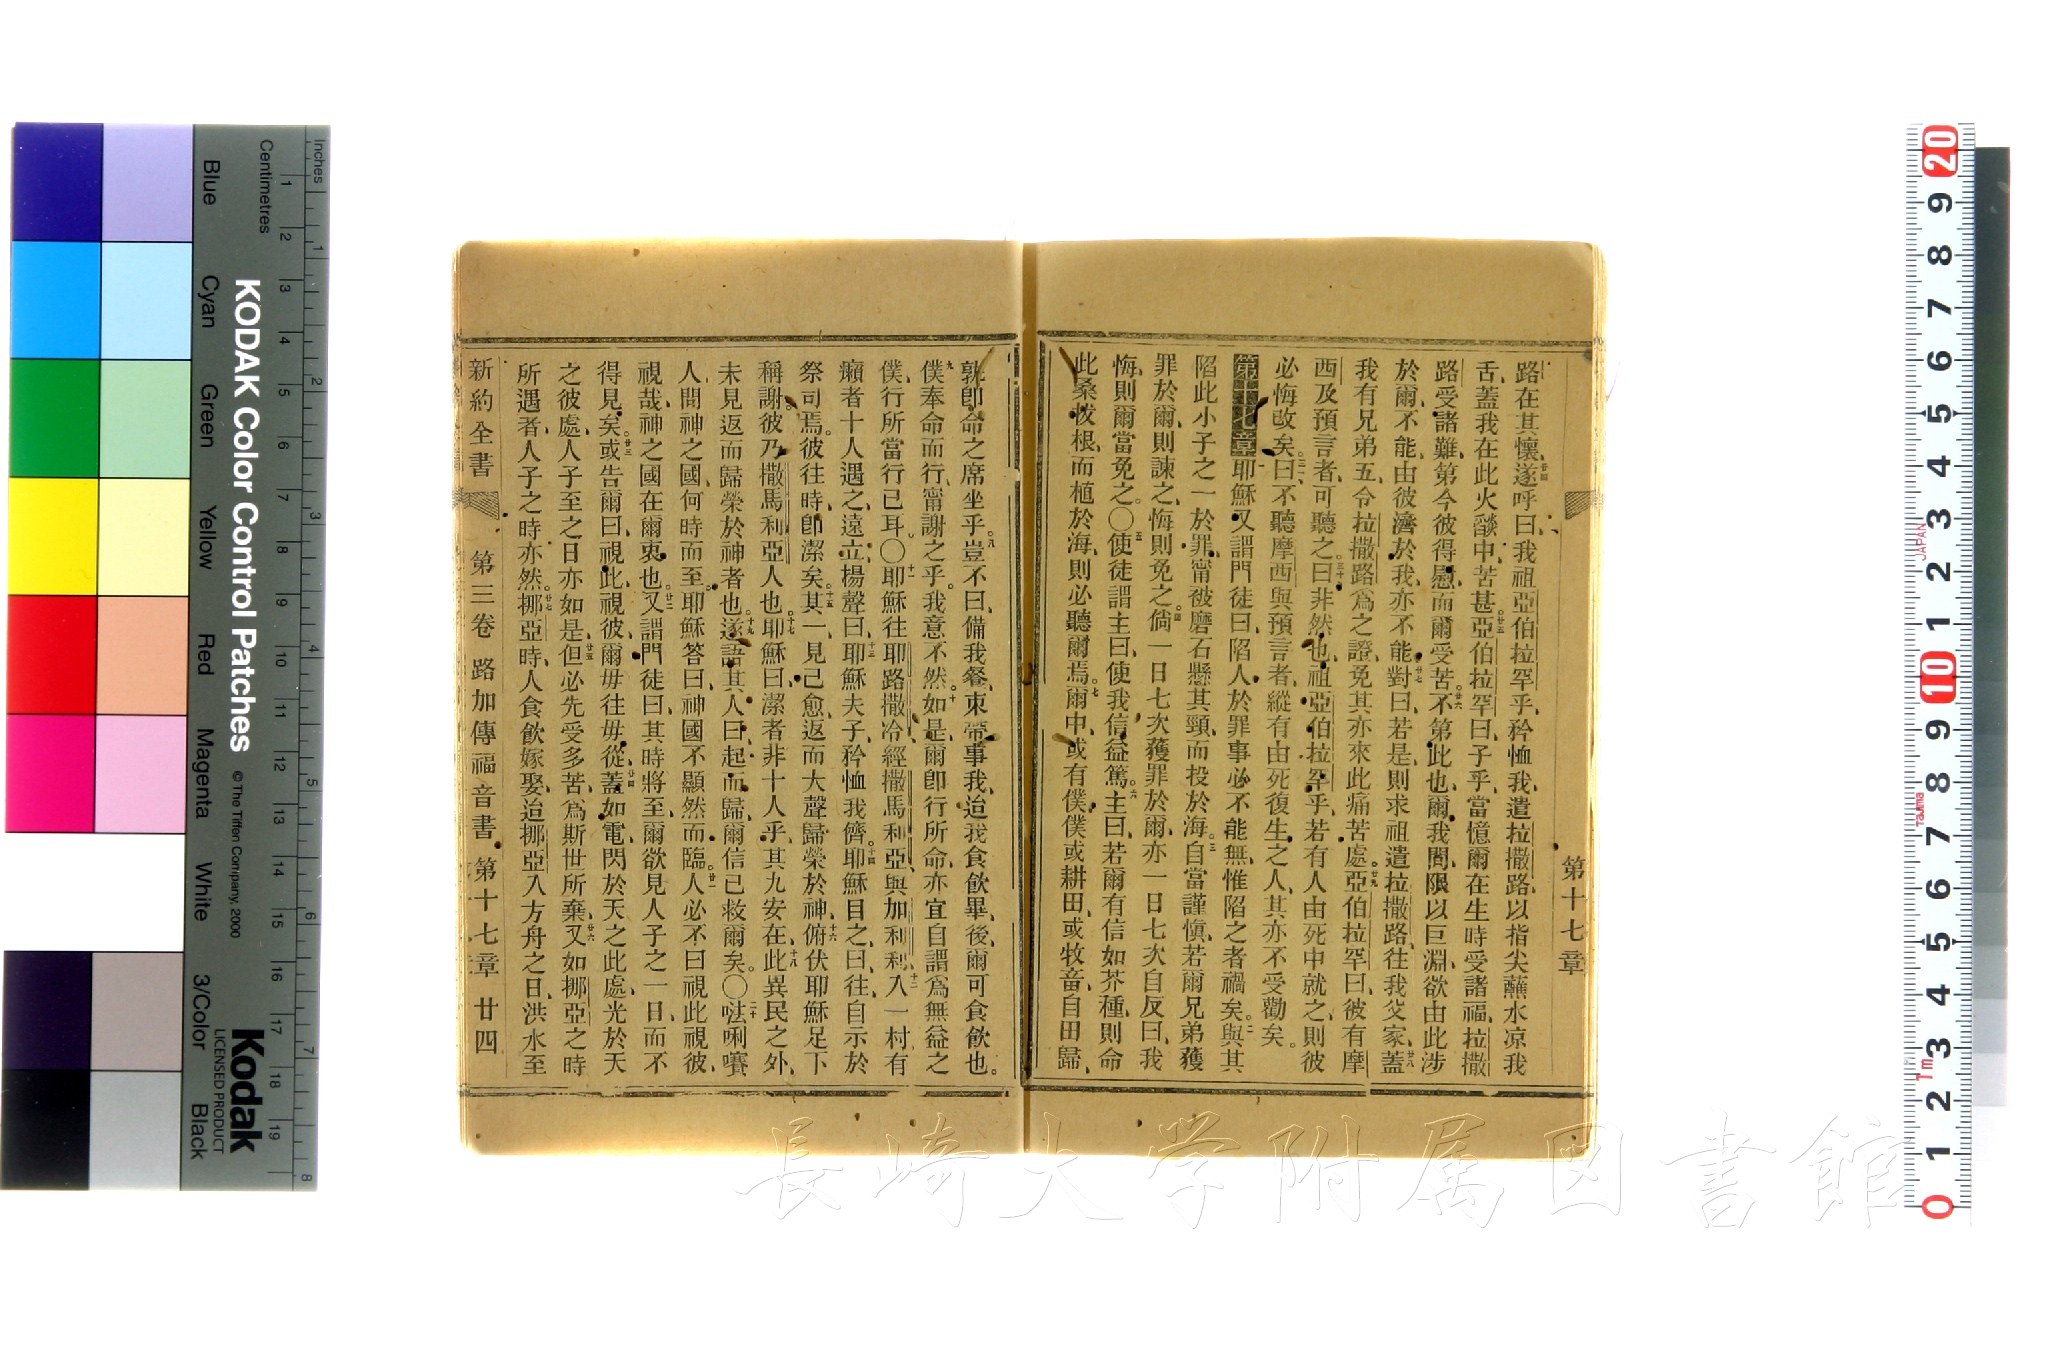 第十七章
路在其懷、廿四遂呼曰、我祖亞伯拉罕乎、矜恤我、遣拉撒路、以指尖蘸水凉我
舌、蓋我在此火燄中、苦甚。廿五亞伯拉罕曰、子乎、當憶爾在生時受諸福、拉撒
路受諸難、第今彼得慰、而爾受苦。廿六不第此也、爾我間、限以巨淵、欲由此涉
於爾、不能、由彼濟於我、亦不能。廿七對曰、若是、則求祖遣拉撒路、往我父家、廿八蓋
我有兄弟五、令拉撒路為之證、免其亦來此痛苦處。廿九亞伯拉罕曰、彼有摩
西及預言者、可聽之。三十曰、非然也、祖亞伯拉罕乎、若有人由死中就之、則彼
必悔改矣。三一曰、不聽摩西與預言者、縱有由死復生之人、其亦不受勸矣。
第十七章 一耶穌又謂門徒曰、陷人於罪事、必不能無、惟陷之者禍矣。二與其
陷此小子之一於罪、甯被磨石懸其頸、而投於海。三自當謹愼、若爾兄弟獲
罪於爾、則諫之、悔則免之。四倘一日七次獲罪於爾、亦一日七次自反曰、我
悔、則爾當免之。〇五使徒謂主曰、使我信益篤。六主曰、若爾有信如芥種、則命
此桑拔根、而植於海、則必聽爾焉。七爾中、或有僕、僕或耕田、或牧畜、自田歸、
孰卽命之席坐乎。八豈不曰、備我餐、束帶事我、迨我食飮畢、後爾可食飮也。
九僕奉命而行、甯謝之乎、我意不然。十如是、爾卽行所命、亦宜自謂為無益之
僕、行所當行已耳。〇十一耶穌往耶路撒冷、經撒馬利亞、與加利利、十二入一村、有
癩者十人遇之、遠立、十三揚聲曰、耶穌夫子、矜恤我儕。十四耶穌目之曰、往自示於
祭司焉、彼往時、卽潔矣。十五其一、見己愈、返而大聲歸榮於神、十六俯伏耶穌足下
稱謝、彼乃撒馬利亞人也。十七耶穌曰、潔者非十人乎、其九安在、十八此異民之外、
未見返而歸榮於神者也。十九遂語其人曰、起而歸、爾信已救爾矣。〇二十㗙唎賽
人問神之國、何時而至、耶穌答曰、神國不顯然而臨。廿一人必不曰、視此視彼、
視哉、神之國在爾衷也。廿二又謂門徒曰、其時將至、爾欲見人子之一日、而不
得見矣。廿三或告爾曰、視此、視彼、爾毋往毋從。廿四蓋如電閃於天之此處、光於天
之彼處、人子至之日亦如是。廿五但必先受多苦、為斯世所棄。廿六又如挪亞之時
所遇者、人子之時亦然。廿七挪亞時、人食飮嫁娶、迨挪亞入方舟之日、洪水至
新約全書 第三卷 路加傳福音書 第十七章 廿四
KODAK Color Control Patches
© The Tiffen Company, 2000
Kodak
LICENSED PRODUCT
Inches
Centimetres
Blue Cyan Green Yellow Red Magenta White 3/Color Black
長崎大学附属図書館